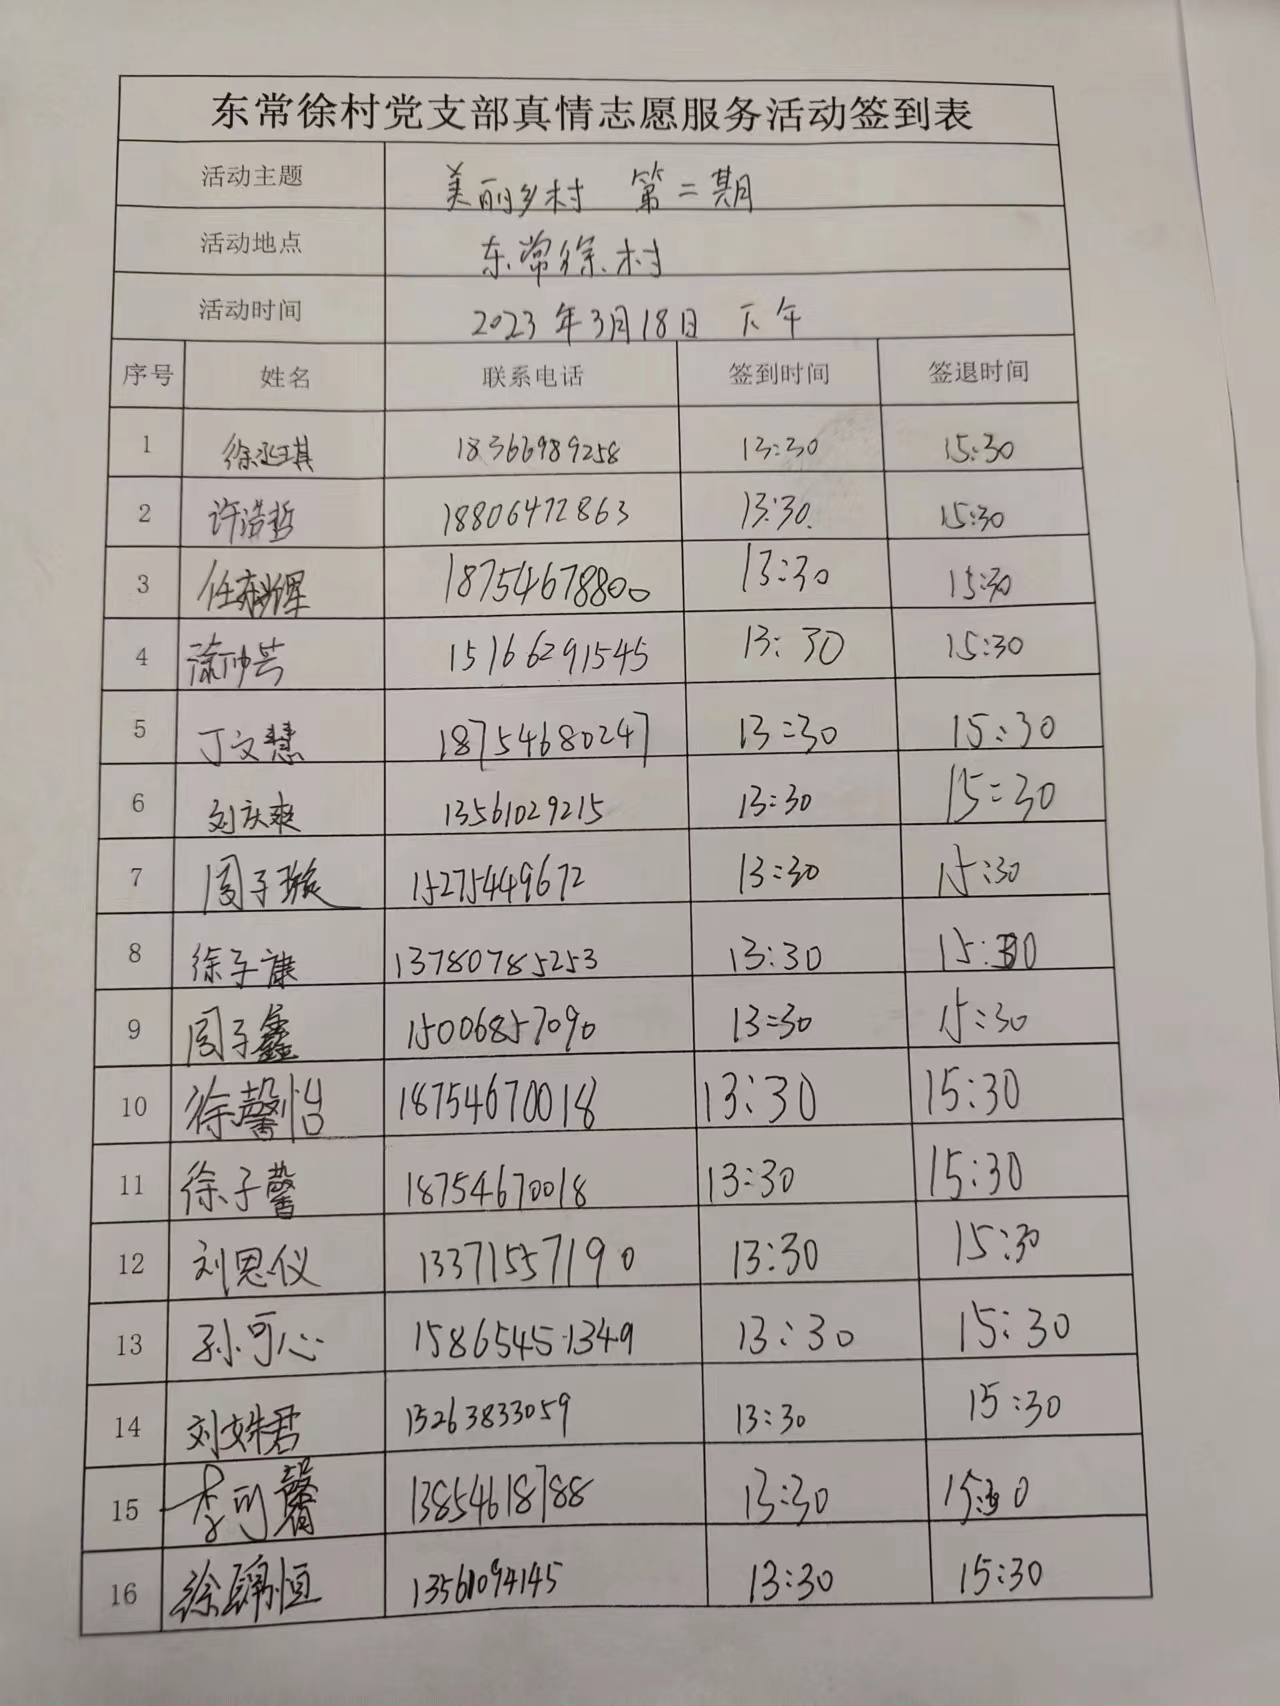 东常徐村党支部真情志愿服务活动签到表
活动主题 美丽乡村 第二期
活动地点 东常徐村
活动时间 2023年3月18日 下午
序号 姓名 联系电话 签到时间 签退时间
1 18366989258 13:30 15:30
2 许浩哲 18806472863 13:30 15:30
3 18754678800 13:30 15:30
4 15166291545 13:30 15:30
5 丁文慧 18754680247 13:30 15:30
6 刘庆爽 13561029215 13:30 15:30
7 周子璇 15275449672 13:30 15:30
8 徐子康 13780785253 13:30 15:30
9 周子鑫 15006857090 13:30 15:30
10 徐馨怡 18754670018 13:30 15:30
11 徐子馨 18754670018 13:30 15:30
12 刘思仪 13371557190 13:30 15:30
13 孙可心 15865451349 13:30 15:30
14 刘姝君 15263833059 13:30 15:30
15 李可馨 13854618788 13:30 15:30
16 13561094145 13:30 15:30